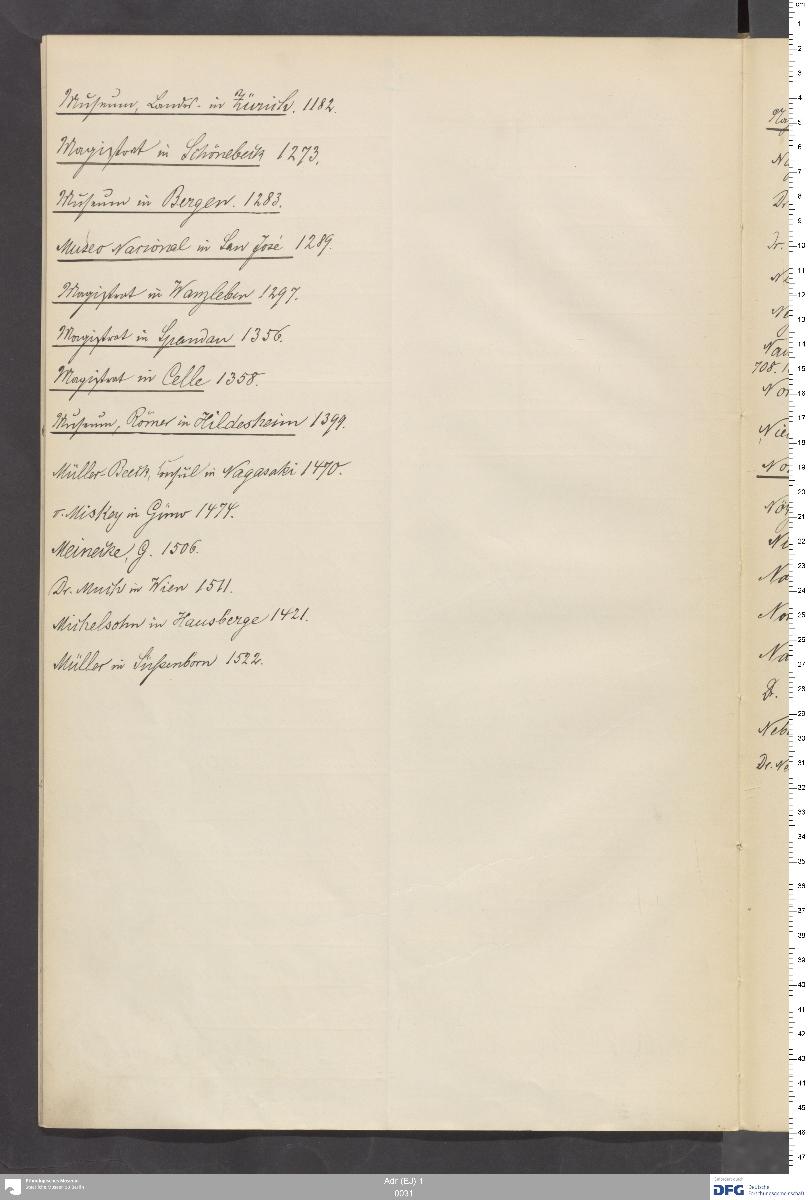 Museum, Landes- in Zürich. 1182.
Magistrat in Schönebeck 1273.
Museum in Bergen. 1283.
Museo Nacional in San José 1289.
Magistrat in Wanzleben 1297.
Magistrat in Spandau 1356.
Magistrat in Celle 1358.
Museum, Römer in Hildesheim 1399.
Müller-Beeck, Consul in Nagasaki 1470.
v. Miskey in 1474.
Meinecke, G. 1506.
Dr. Much in Wien 1511.
Michelsohn in Hausberge 1421.
Müller in Süßenborn 1522.
708.
Dr.
Adr (EJ) 1
0031
Ethnologisches Museum
DFG Deutsche
Forschungsgemeinschaft